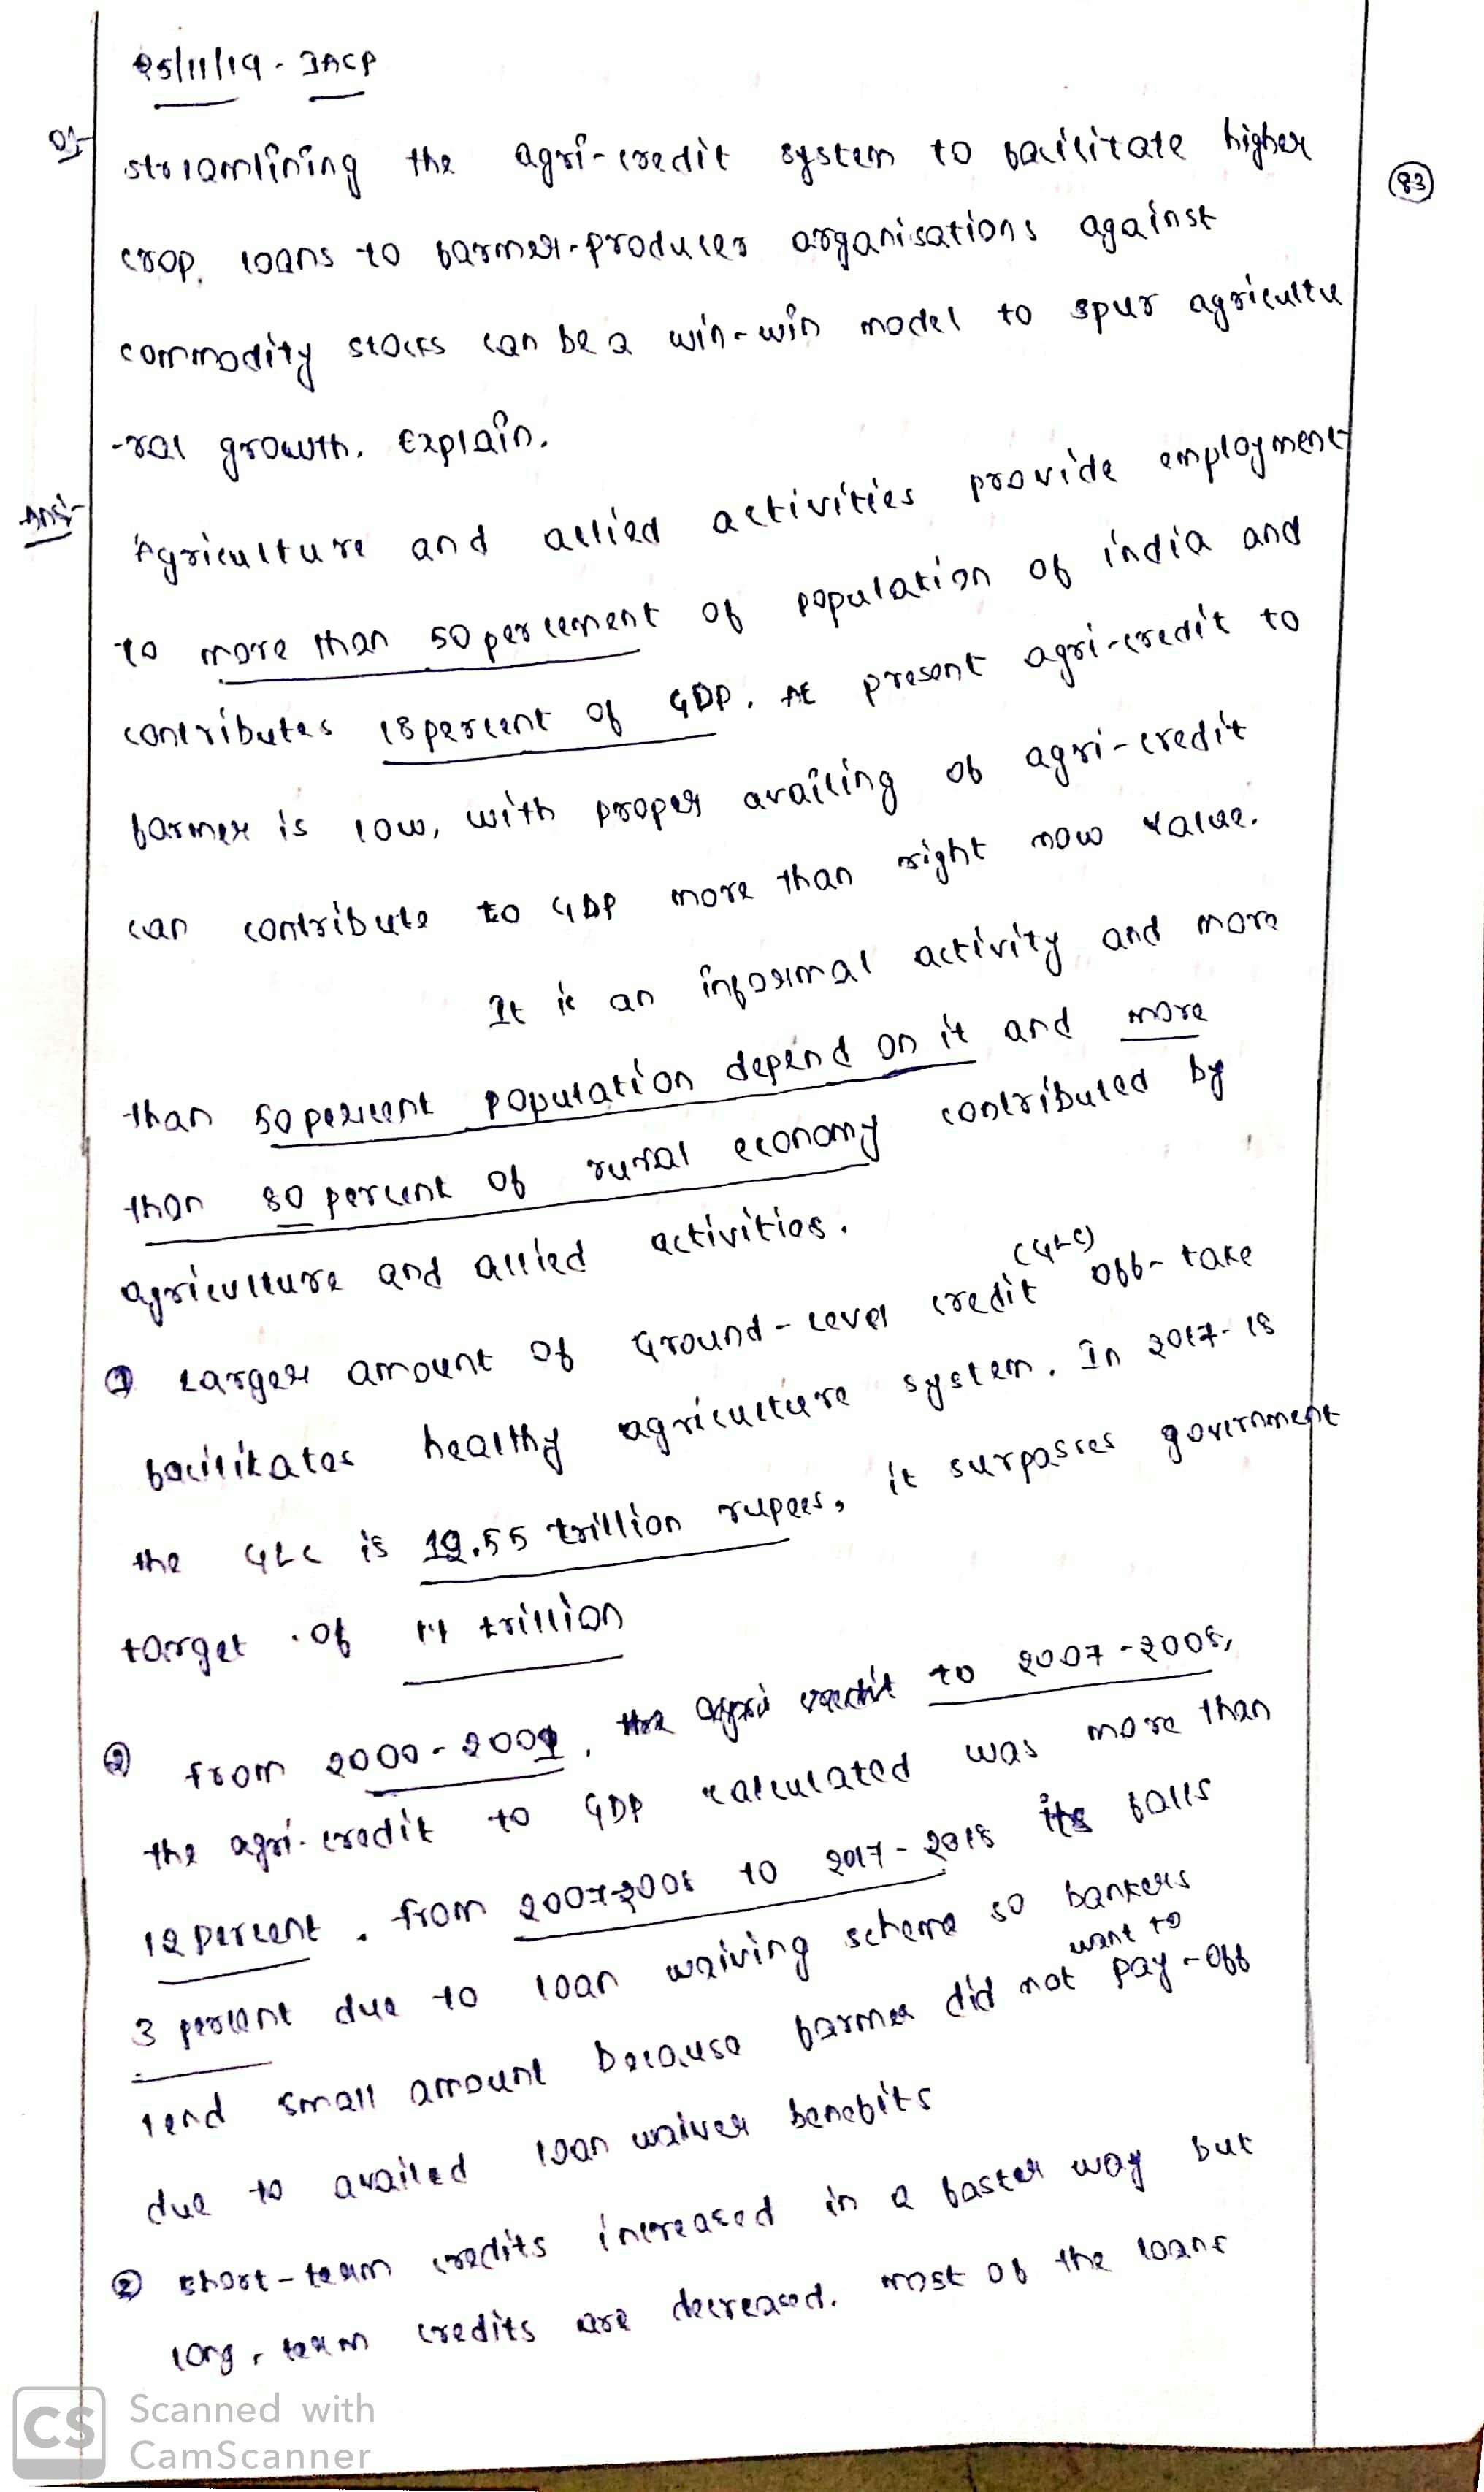 25/11/19 - IACP
Q1-
streamlining the agri-credit system to facilitate higher
(83)
crop loans to farmer-producer organisations against
commodity stocks can be a win-win model to spur agricultu
-ral growth. Explain.
Ans:-
Agriculture and allied activities provide employment
to more than 50 percement of population of india and
contributes 18 percent of GDP. At present agri-credit to
farmer is low, with proper availing of agri-credit
can contribute to GDP more than right now value.
It is an informal activity and more
than 50 percent population depend on it and more
than 80 percent of rural economy contributed by
agriculture and allied activities.
① Larger amount of Ground-level credit (GLC) off-take
facilitates healthy agriculture system. In 2017-18
the GLC is 12.55 trillion rupees, it surpasses government
target of 11 trillion
② from 2000-2001, to 2007-2008,
the agri-credit to GDP calculated was more than
12 percent. from 2007-2008 to 2017-2018 its falls
3 percent due to loan waiving scheme so bankers
lend small amount because farmer did not want to pay-off
due to availed loan waiver benefits
② short-team credits increased in a faster way but
long-team credits are decreased. most of the loans
CS Scanned with
CamScanner